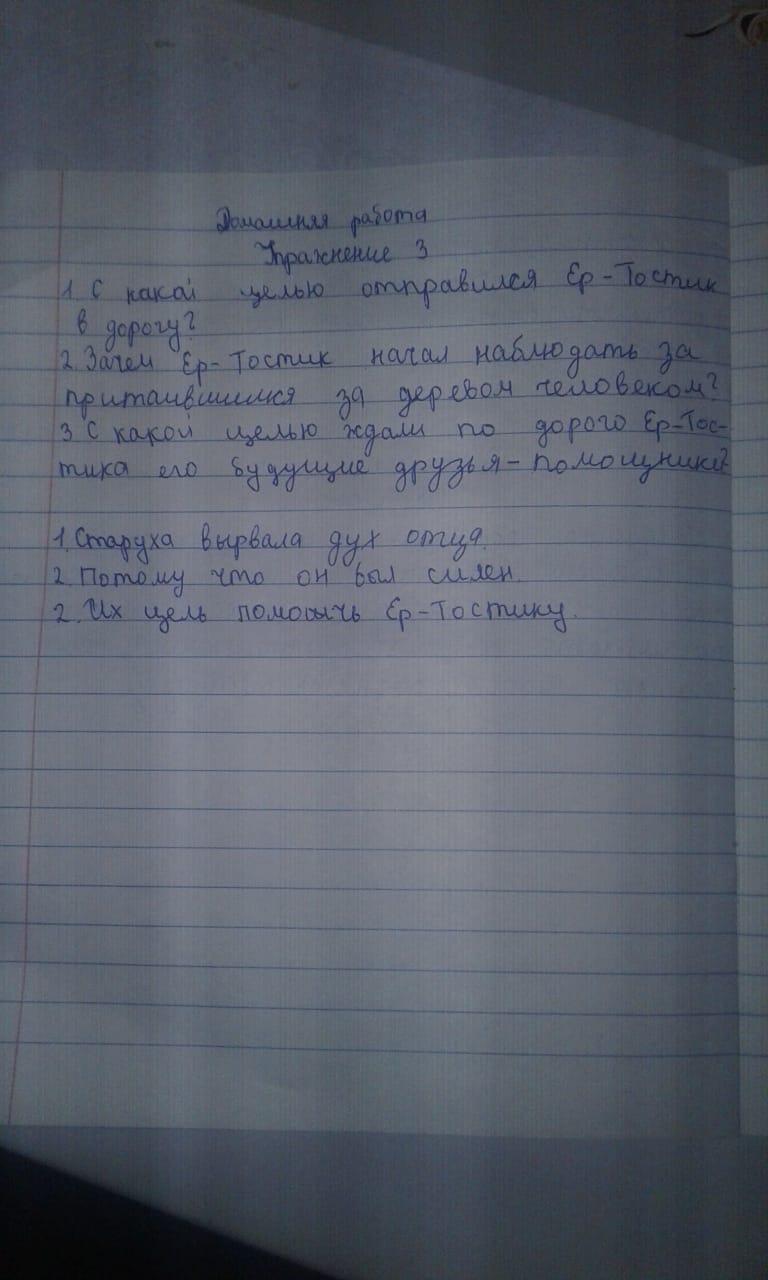 Домашняя работа
Упражнение 3
1 С какай целью отправился Ер-Тостик
в дорогу?
2. Зачем Ер-Тостик начал наблюдать за
притаившимся за деревом человеком?
3 С какой целью ждали по дорого Ер-Тос-
тика его будущие друзья-помощники?
1. Старуха вырвала дух отца.
2. Потому что он был силен.
2. Их цель помочь Ер-Тостику.